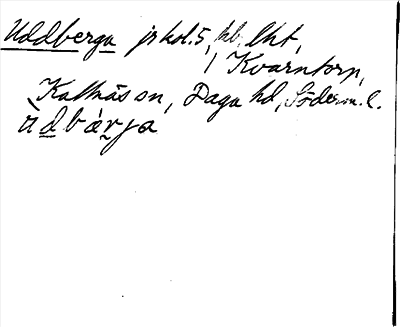 Uddberga jrkol.5, hb. lht,
Kvarntorp,
Kattnäs sn, Daga hd, Söderm. l.
ùdbǽrja